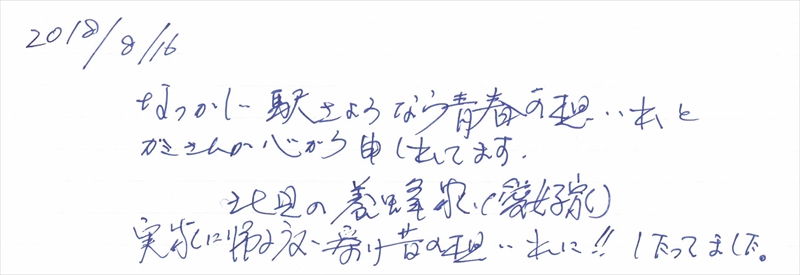 2018/8/16
なつかしい駅さようなら青春の想い出と
がきさんが心から申し出てます.
北見の養蜂家(愛好家)
実家に帰る度い 昔の想い出に!! したってました。